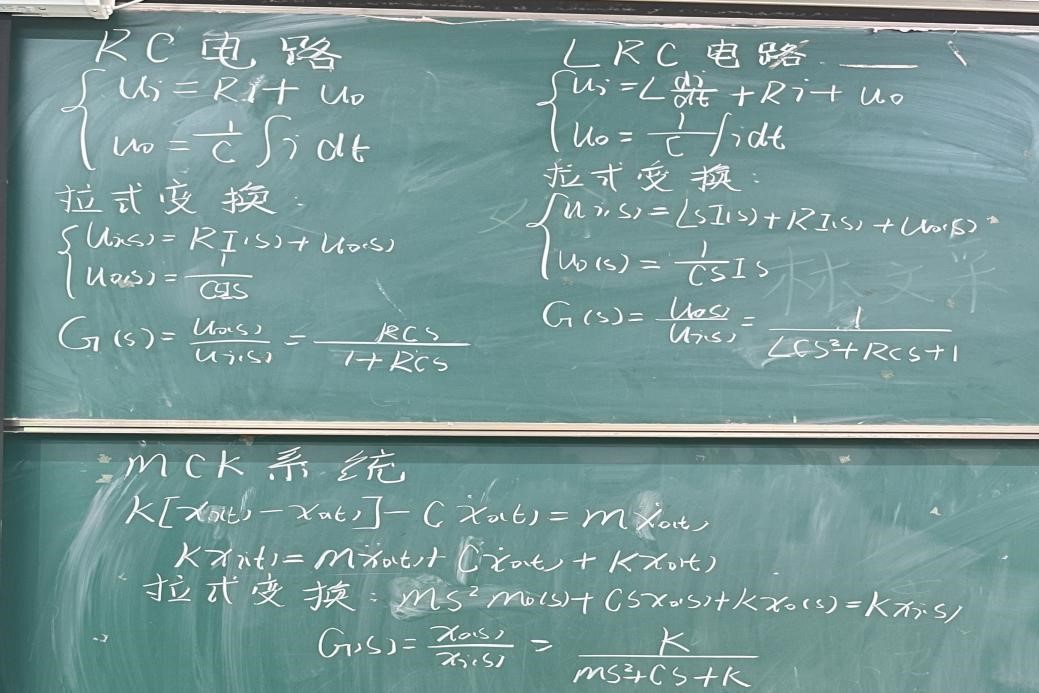 RC电路
ui = Ri + uo
uo = 1/C ∫i dt
拉式变换:
Ui(s) = RI(s) + Uo(s)
Uo(s) = 1/CIS
G(s) = Uo(s)/Ui(s) = RCS/1+RCS
LRC电路
ui = L di/dt + Ri + uo
uo = 1/C ∫i dt
拉式变换:
Ui(s) = LsI(s) + RI(s) + Uo(s)
Uo(s) = 1/CS IS
G(s) = Uo(s)/Ui(s) = 1/LCS²+RCS+1
MCK系统
K[xi(t) - xo(t)] - Cẋo(t) = mẍo(t)
Kxi(t) = mẍo(t) + Cẋo(t) + Kxo(t)
拉式变换: ms²mo(s) + CSxo(s) + Kxo(s) = Kxi(s)
G(s) = xo(s)/xi(s) = K/mS²+CS+K